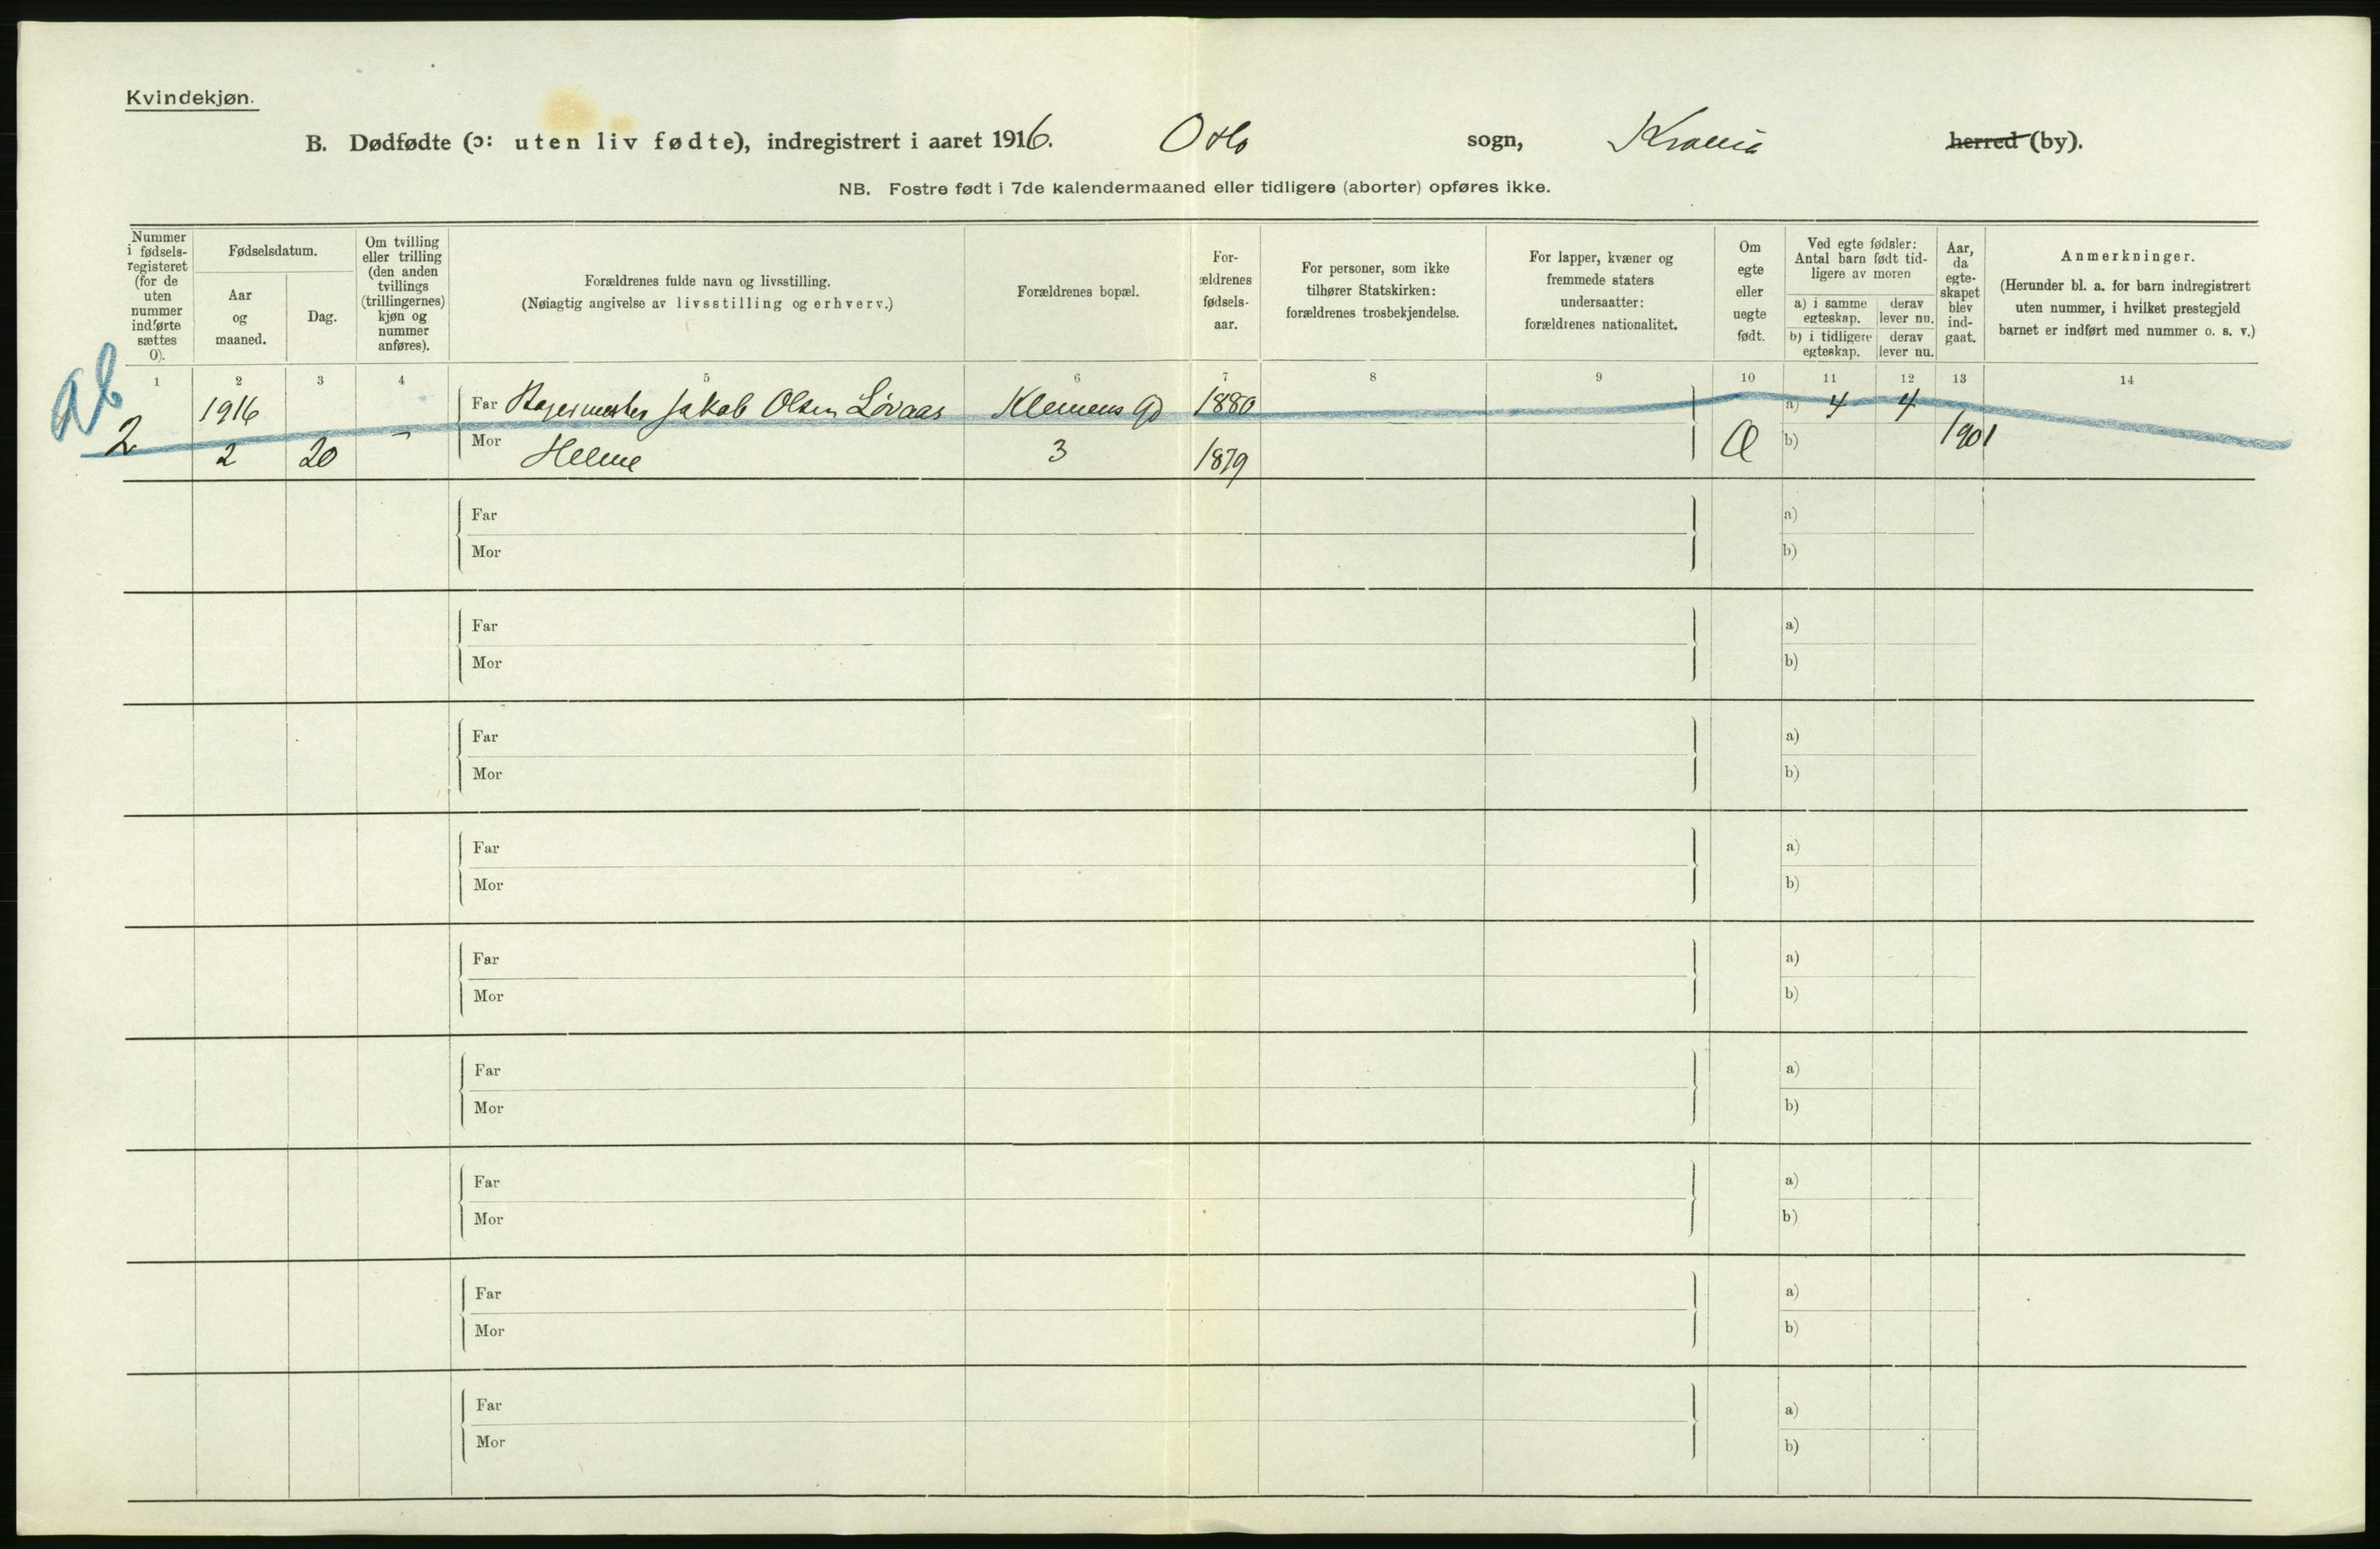 Kvindekjøn.
B. Dødfødte (ɔ: uten liv fødte), indregistrert i aaret 1916. Oslo sogn, Krania herred (by).
NB. Fostre født i 7de kalendermaaned eller tidligere (aborter) opføres ikke.
Nummer i fødsels-registeret (for de uten nummer indførte sættes 0).
Fødselsdatum.
Aar og maaned.
Dag.
Om tvilling eller trilling (den anden tvillings (trillingernes) kjøn og nummer anføres).
Forældrenes fulde navn og livsstilling.
(Nøiagtig angivelse av livsstilling og erhverv.)
Forældrenes bopæl.
For-ældrenes fødsels-aar.
For personer, som ikke tilhører Statskirken: forældrenes trosbekjendelse.
For lapper, kvæner og fremmede staters undersaatter: forældrenes nationalitet.
Om egte eller uegte født.
Ved egte fødsler: Antal barn født tid-ligere av moren
a) i samme egteskap.
derav lever nu.
b) i tidligere egteskap.
derav lever nu.
Aar, da egte-skapet blev ind-gaat.
Anmerkninger.
(Herunder bl. a. for barn indregistrert uten nummer, i hvilket prestegjeld barnet er indført med nummer o. s. v.)
1 2 3 4 5 6 7 8 9 10 11 12 13 14
ab
1916 Far Bagermester Jakob Olsen Løvaas Klemens Gd 1880 a) 4 4
2 2 20 - Mor Helene 3 1879 Æ b) 1901
Far a)
Mor b)
Far a)
Mor b)
Far a)
Mor b)
Far a)
Mor b)
Far a)
Mor b)
Far a)
Mor b)
Far a)
Mor b)
Far a)
Mor b)
Far a)
Mor b)